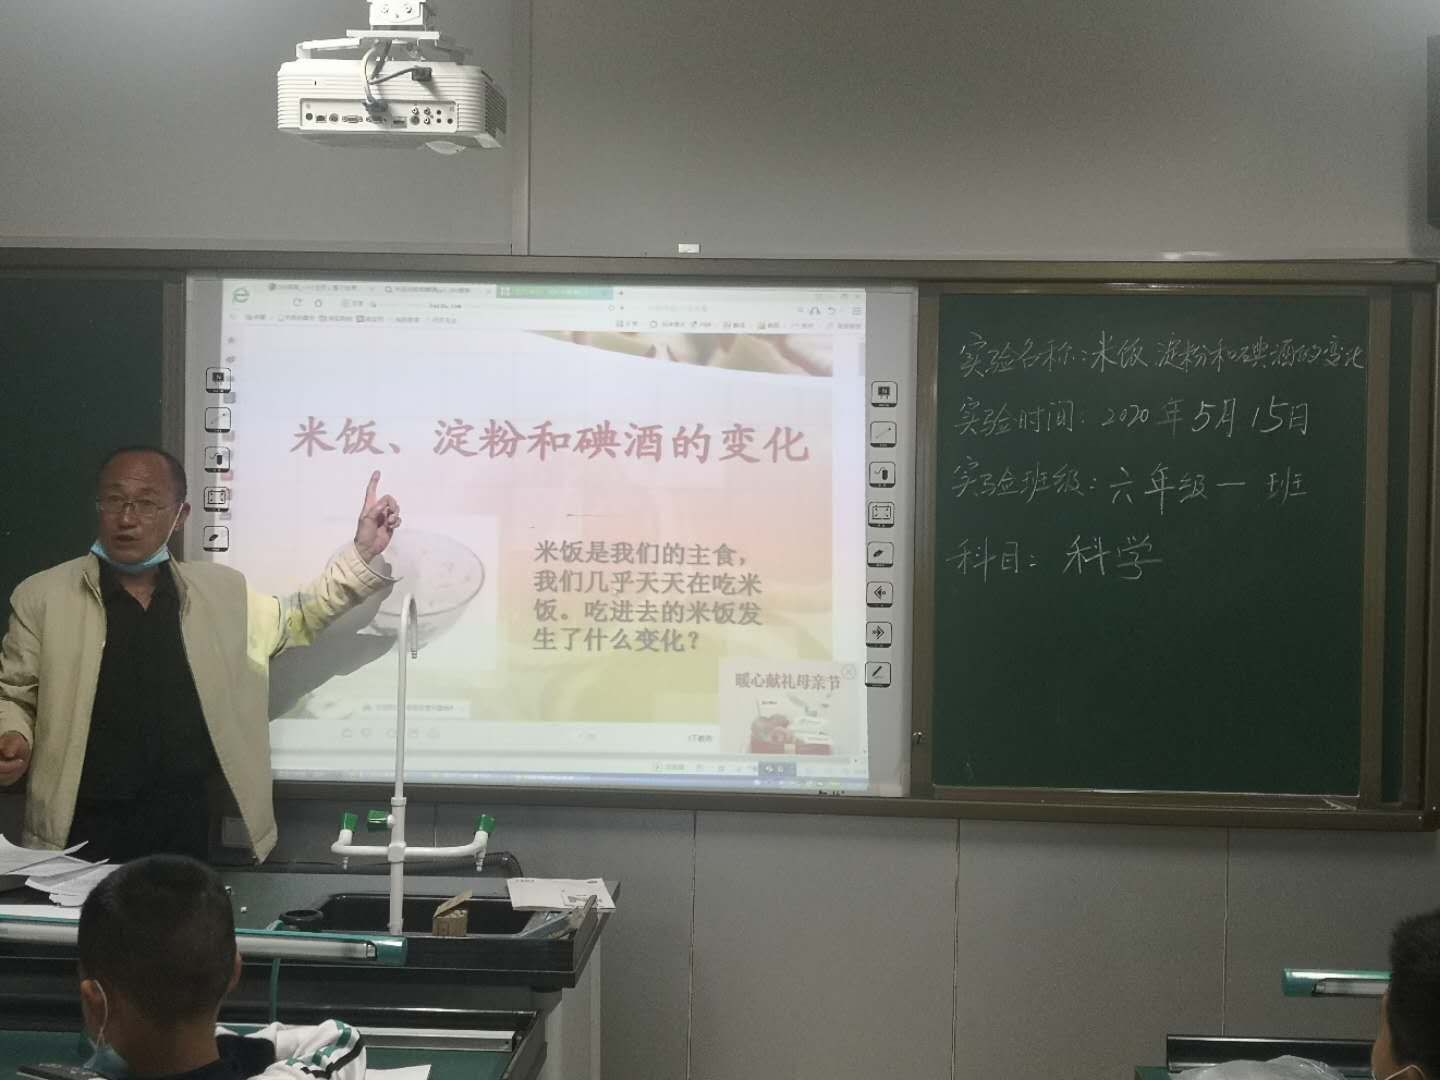 米饭、淀粉和碘酒的变化
米饭是我们的主食，
我们几乎天天在吃米
饭。吃进去的米饭发
生了什么变化？
暖心献礼母亲节
实验名称：米饭 淀粉和碘酒的变化
实验时间：2020年5月15日
实验班级：六年级一 班
科目：科学